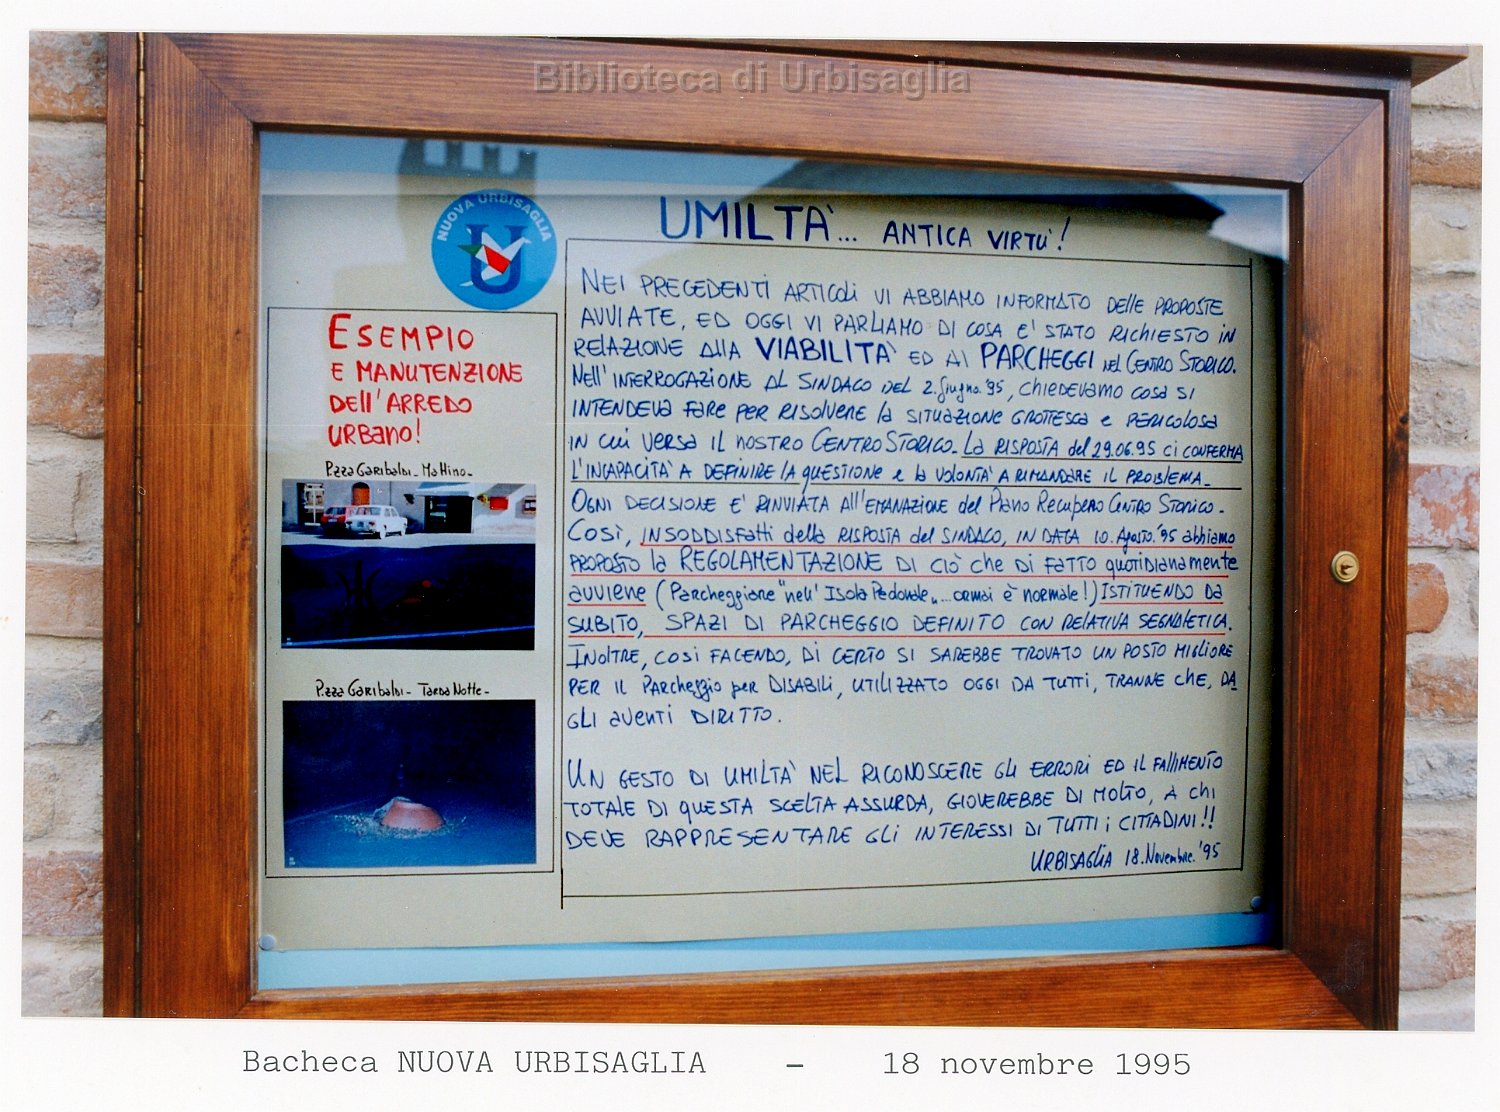 Biblioteca di Urbisaglia
NUOVA URBISAGLIA
U
UMILTA'... ANTICA VIRTU'!
ESEMPIO
E MANUTENZIONE
DELL'ARREDO
URBANO!
P.zza GARIBALDI - MATTINO -
P.zza GARIBALDI - TARDA NOTTE -
NEI PRECEDENTI ARTICOLI VI ABBIAMO INFORMATO DELLE PROPOSTE
AVVIATE, ED OGGI VI PARLIAMO DI COSA E' STATO RICHIESTO IN
RELAZIONE ALLA VIABILITA' ED AI PARCHEGGI NEL CENTRO STORICO.
NELL'INTERROGAZIONE AL SINDACO DEL 2.Giugno.'95, CHIEDEVAMO COSA SI
INTENDEVA FARE PER RISOLVERE LA SITUAZIONE GROTTESCA E PERICOLOSA
IN CUI VERSA IL NOSTRO CENTRO STORICO. LA RISPOSTA del 29.06.95 CI CONFERMA
L'INCAPACITA' A DEFINIRE LA QUESTIONE E LA VOLONTA' A RIMANDARE IL PROBLEMA.
OGNI DECISIONE E' RINVIATA ALL'EMANAZIONE del Piano Recupero CENTRO STORICO.
COSI', INSODDISFATTI della RISPOSTA del SINDACO, IN DATA 10.Agosto.'95 abbiamo
PROPOSTO la REGOLAMENTAZIONE DI CIÒ CHE DI FATTO quotidianamente
avviene (Parcheggiare "nell'Isola Pedonale"...ormai è normale!) ISTITUENDO DA
SUBITO, SPAZI DI PARCHEGGIO DEFINITO CON RELATIVA SEGNALETICA.
INOLTRE, COSI FACENDO, DI CERTO SI SAREBBE TROVATO UN POSTO MIGLIORE
PER IL Parcheggio per DISABILI, UTILIZZATO OGGI DA TUTTI, TRANNE CHE, DA
GLI AVENTI DIRITTO.
UN GESTO DI UMILTA' NEL RICONOSCERE GLI ERRORI ED IL FALLIMENTO
TOTALE DI QUESTA SCELTA ASSURDA, GIOVEREBBE DI MOLTO, A CHI
DEVE RAPPRESENTARE GLI INTERESSI DI TUTTI I CITTADINI!!
URBISAGLIA 18.Novembre.'95
Bacheca NUOVA URBISAGLIA - 18 novembre 1995